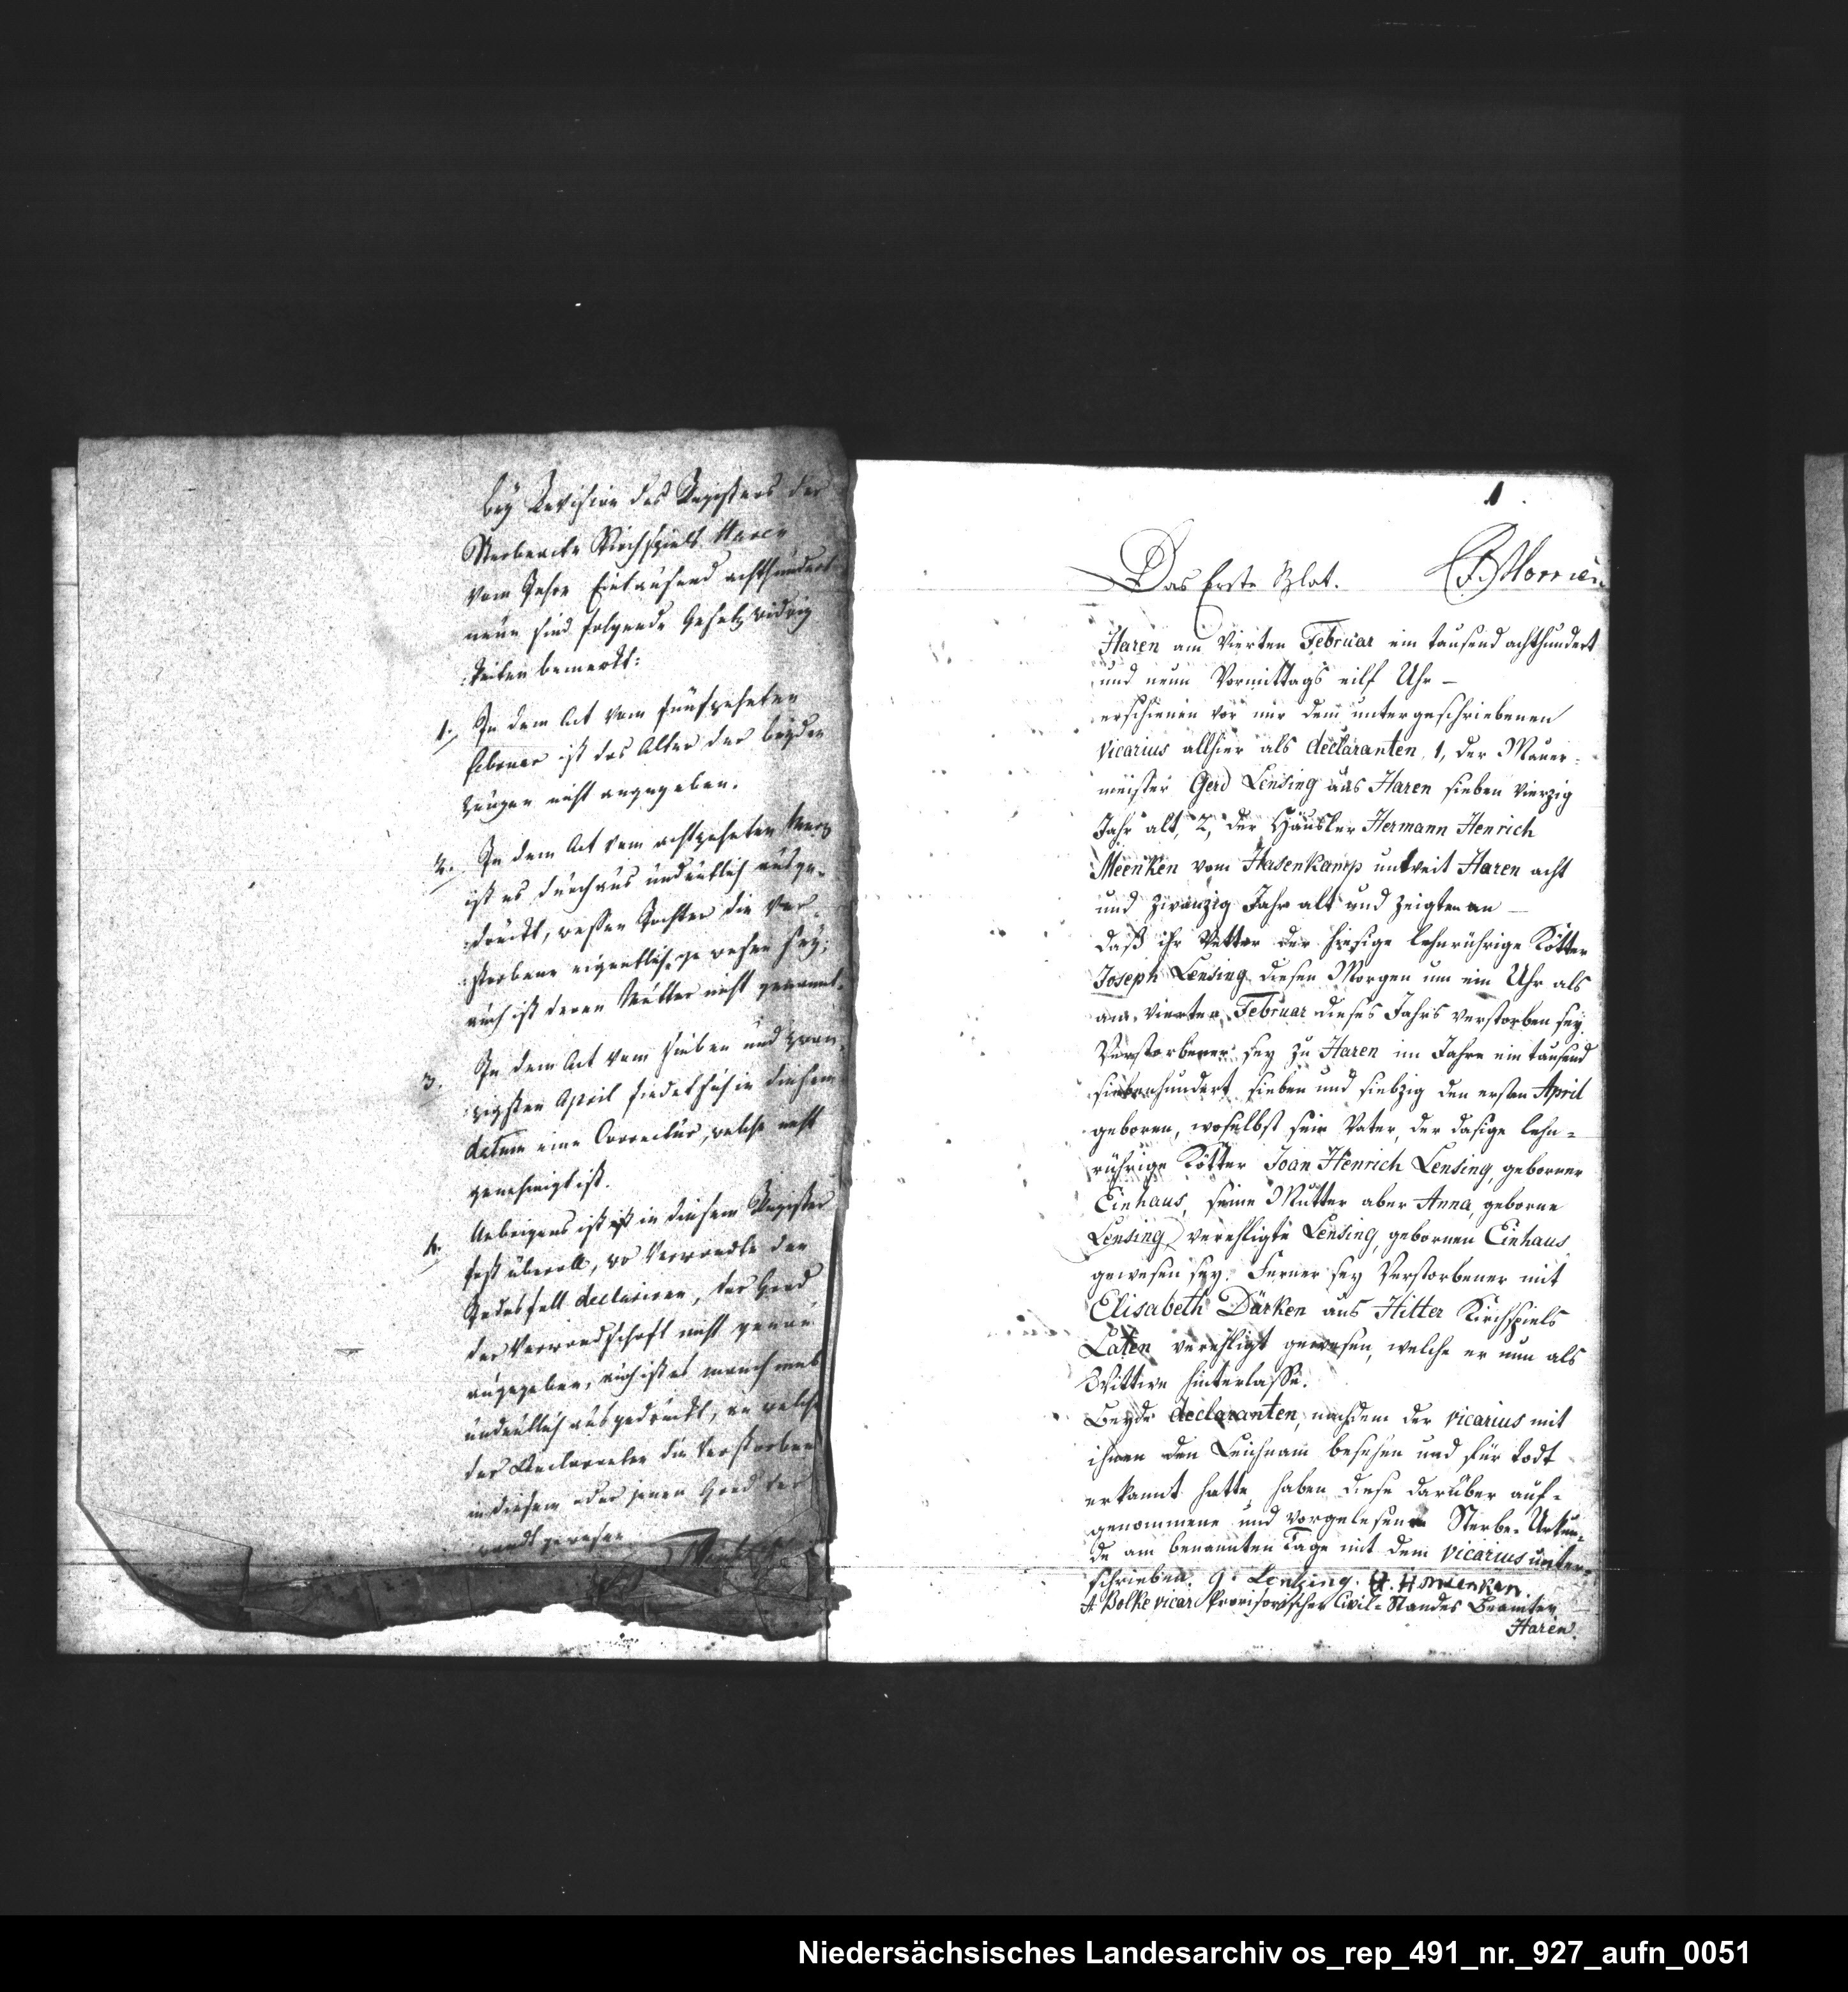 bey Revision des Registers der
Sterbeacte Kirchspiels Haren
vom Jahre Eintausend achthundert
neun sind folgende Gesetzwidrig
keiten bemerkt:
1., In dem Act vom fünfzehnten
Februar ist das Alter der beyden
Zeugen nicht angegeben.
2., In dem Act vom achtzehnten März
ist es durchaus undeutlich ausge-
drückt, wessen Tochter die Ver-
storbene eigentlich gewesen sey;
auch ist deren Mutter nicht genannt.
3. In dem Act vom sieben und zwan-
zigsten April findet sich in diesem
datum eine Correctur, welche nicht
genehmigt ist.
4. Uebrigens ist in diesem Register
fast überall, wo Verwandte den
Todesfall declariren, der Grad
der Verwandschaft nicht genau
angegeben, auch ist es manchmal
undeutlich ausgedrückt, in welche
der Declaranten die Verstorbene
in diesem oder jenen Grad ver
wandt gewesen
1
Das Erste Blat.
Haren am Vierten Februar ein tausend achthundert
und neun Vormittags eilf Uhr –
erschienen vor mir dem untergeschriebenen
Vicarius allhier als declaranten 1, der Mauer-
meister Gerd Lensing aus Haren sieben vierzig
Jahr alt, 2, der Häusler Hermann Henrich
Meenken vom Hasenkamp unweit Haren acht
und zwanzig Jahr alt und zeigten an –
daß ihr Vetter der hiesige lehnrührige Kötter
Joseph Lensing diesen Morgen um ein Uhr als
am vierten Februar dieses Jahrs verstorben sey.
Verstorbener sey zu Haren im Jahre ein tausend
siebenhundert sieben und siebzig den ersten April
geboren, woselbst sein Vater, der dasige lehn-
rührige Kötter Joan Henrich Lensing, geborner
Einhaus, seine Mutter aber Anna, geborne
Lensing, verehligte Lensing, gebornen Einhaus
gewesen sey. Ferner sey Verstorbener mit
Elisabeth Därken aus Hitter Kirchspiels
Laten verehligt gewesen, welche er nun als
Wittwe hinterlasse.
Beyde declaranten, nachdem der vicarius mit
ihnen den Leichnam besehen und für todt
erkannt hatte, haben diese darüber auf-
genommene und vorgelesene Sterbe-Urkun-
de am benannten Tage mit dem vicarius unter-
schrieben. G. Lensing.
A Bolke vicar Provisorischer Civil-Standes Beamter
Haren.
Niedersächsisches Landesarchiv os_rep_491_nr._927_aufn_0051